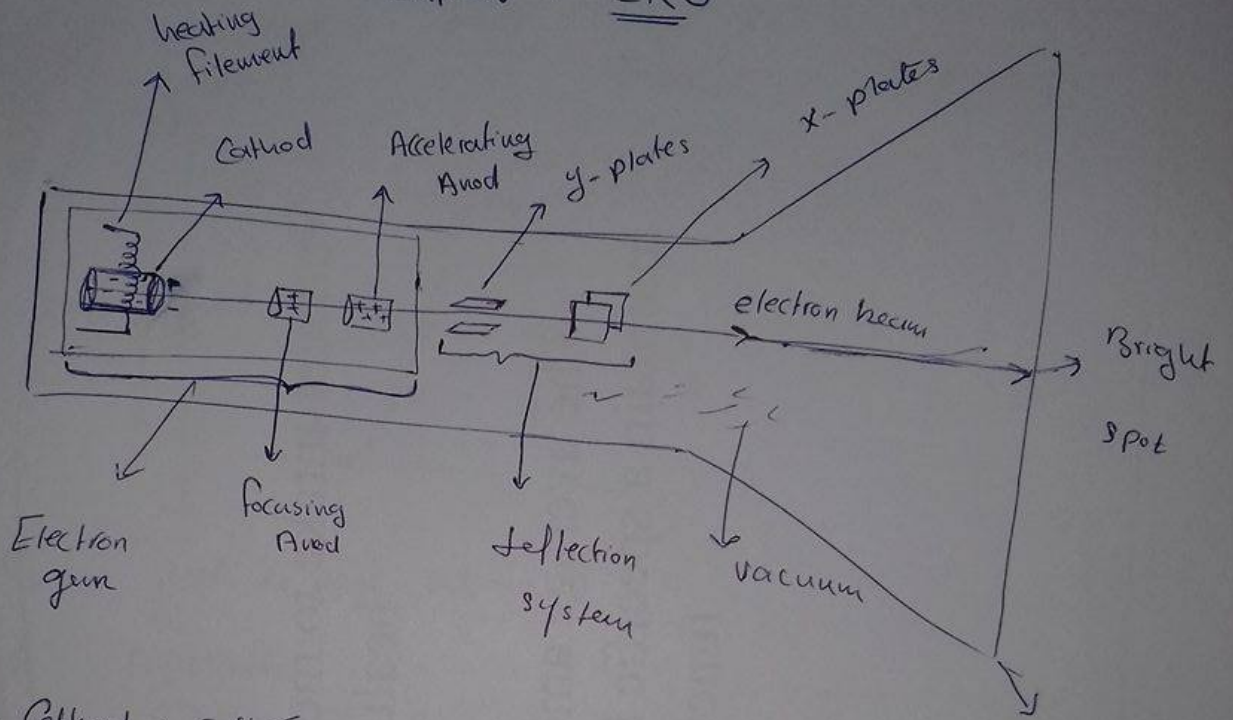 CRO
heating
filement
Cathod
Accelerating
Anod
y-plates
x-plates
electron beam
Bright
spot
Electron
gun
focusing
Anod
deflection
system
vacuum